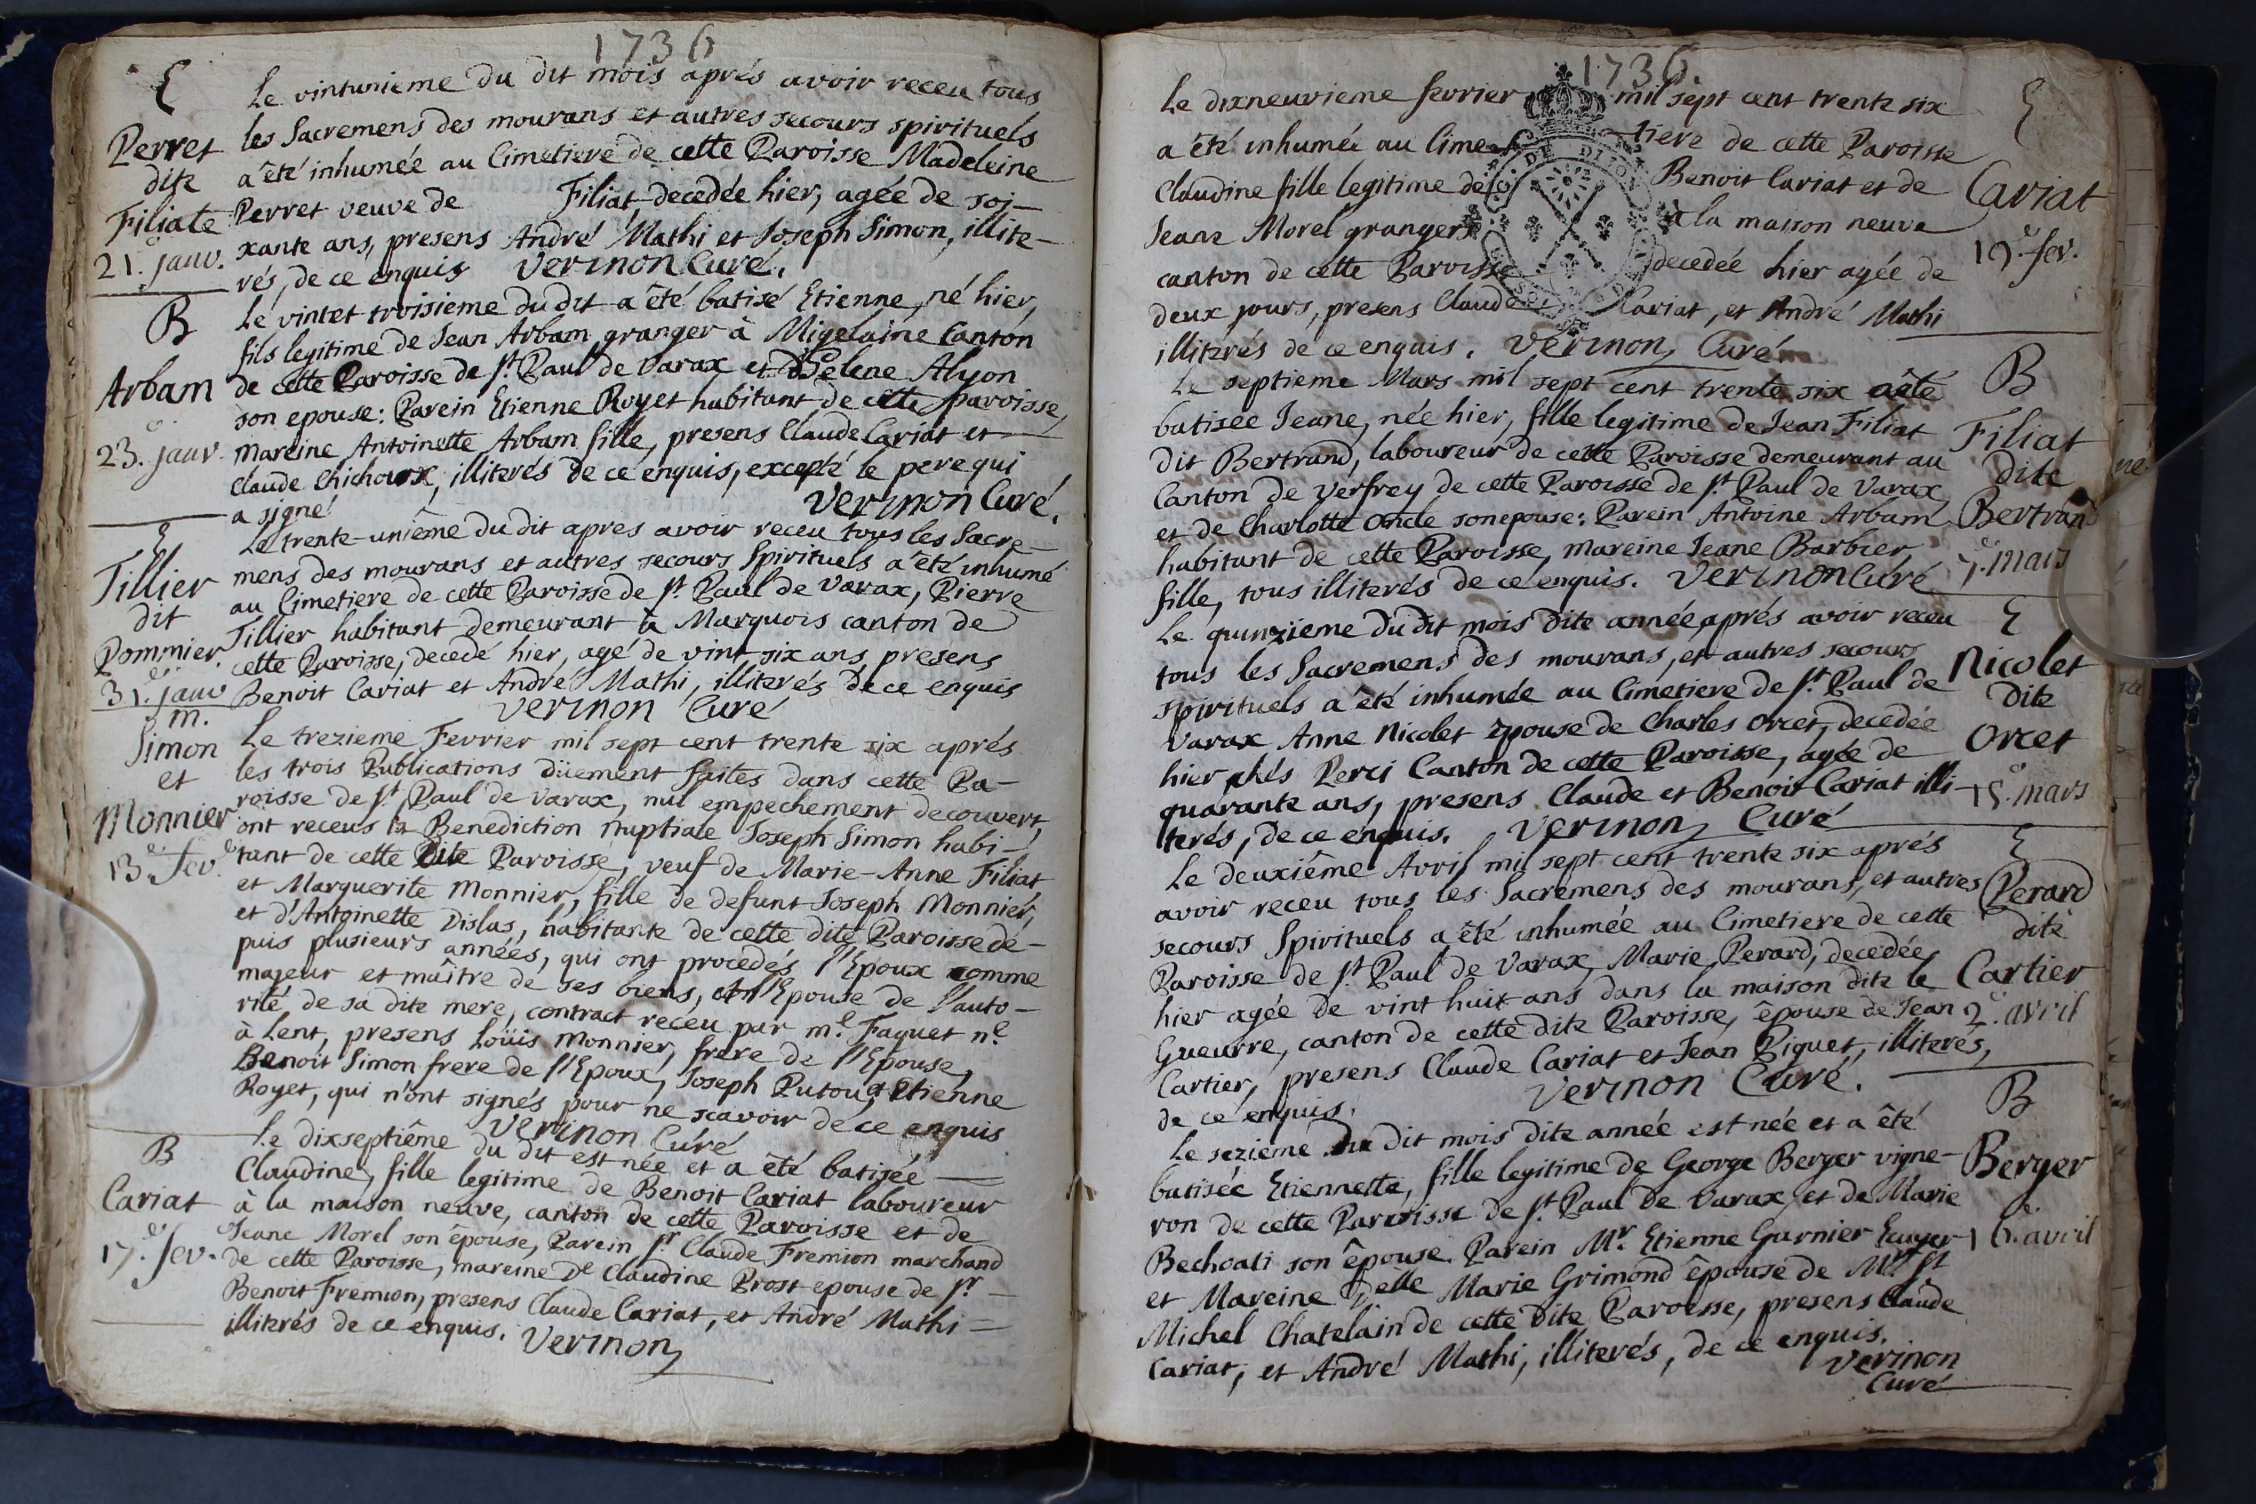 1736
E
Perret
dite
Filiate
21.e janv.
Le vintunieme du dit mois aprés avoir receu tous
les Sacremens des mourans et autres secours spirituels
a été inhumée au Cimetiere de cette Paroisse Madeleine
Perret veuve de Filiat decedée hier, agée de soi-
xante ans, presens André Mathi et Joseph Simon, illite-
rés, de ce enquis Verinon Curé.
B
Arbam
23.e janv.
Le vintet troisieme du dit a été batisé Etienne, né hier,
fils legitime de Jean Arbam granger à Migelaine Canton
de cette Paroisse de st. Paul de Varax et d'Helene Alyon
son epouse: Parein Etienne Royet habitant de cette paroisse,
Mareine Antoinette Arbam fille, presens Claude Cariat et
Claude Chichoux, illiterés de ce enquis, excepté le pere qui
a signé Verinon Curé.
E
Tillier
dit
Pommier
31.e janv
Le trente-uniême du dit apres avoir receu tous les Sacre-
mens des mourans et autres secours Spirituels a été inhumé
au Cimetiere de cette Paroisse de st. Paul de Varax, Pierre
Tillier habitant demeurant à Marquois canton de
cette Paroisse, decedé hier, agé de vint-six ans, presens
Benoit Cariat et André Mathi, illiterés de ce enquis
Verinon Curé
m.
Simon
et
Monnier
13.e fev.
Le trezieme Fevrier mil sept cent trente six aprés
les trois Publications düement faites dans cette Pa-
roisse de st. Paul de Varax, nul empechement decouvert,
ont receus la Benediction Nuptiale Joseph Simon habi-
tant de cette dite Paroisse, veuf de Marie-Anne Filiat
et Marguerite Monnier, fille de defunt Joseph Monnier,
et d'Antoinette Dislas, habitante de cette dite Paroisse de-
puis plusieurs années, qui ont procedés l'Epoux comme
majeur et maître de ses biens, et l'Epouse de l'auto-
rité de sa dite mere, contract receu par me. Faguet ne.
à Lent, presens Loüis Monnier, frere de l'Epouse,
Benoit Simon frere de l'Epoux, Joseph Putoud, Etienne
Royet, qui n'ont signés pour ne scavoir de ce enquis
Verinon Curé
B
Cariat
17.e fev.
Le dixseptiême du dit est née et a été batisée
Claudine, fille legitime de Benoit Cariat laboureur
à la maison neuve, canton de cette Paroisse et de
Jeane Morel son êpouse, Parein sr. Claude Fremion marchand
de cette Paroisse, mareine De. Claudine Prost epouse de sr.
Benoit Fremion, presens Claude Cariat, et André Mathi
illiterés de ce enquis. Verinon
1736.
Le dixneuvieme fevrier mil sept cent trente six
a été inhumée au Cimetiere de cette Paroisse
Claudine fille legitime de Benoit Cariat et de
Jeane Morel grangers à la maison neuve
canton de cette Paroisse decedée hier agée de
deux jours, presens Claude Cariat, et André Mathi
illiterés de ce enquis. Verinon Curé
E
Cariat
19.e fev.
DE DIJON
Le septieme Mars mil sept cent trente six a été
batisée Jeane, née hier, fille legitime de Jean Filiat
dit Bertrand, laboureur de cette Paroisse demeurant au
Canton de Verfrey de cette Paroisse de st. Paul de Varax
et de Charlotte Oncle son epouse: Parein Antoine Arbam
habitant de cette Paroisse, mareine Jeane Barbier
fille, tous illiterés de ce enquis. Verinon Curé
B
Filiat
dite
Bertrand
7.e mars
Le quinzieme du dit mois dite année, aprés avoir receu
tous les Sacremens des mourans, et autres secours
spirituels a été inhumée au Cimetiere de st. Paul de
Varax Anne Nicolet epouse de Charles Orcet, decedée
hier chés Perci Canton de cette Paroisse, agée de
quarante ans, presens Claude et Benoit Cariat illi-
terés, de ce enquis. Verinon Curé
E
Nicolet
dite
Orcet
15.e mars
Le deuxiême Avril mil sept cent trente six aprés
avoir receu tous les Sacremens des mourans, et autres
secours Spirituels a été inhumée au Cimetiere de cette
Paroisse de st. Paul de Varax, Marie Perard, decedée
hier agée de vint huit ans dans la maison dite le
Gueurre, canton de cette dite Paroisse, êpouse de Jean
Cartier, presens Claude Cariat et Jean Piguet, illiterés,
de ce enquis. Verinon Curé.
E
Perard
dite
Cartier
2.e avril
Le sezieme du dit mois dite année est née et a été
batisée Etiennette, fille legitime de George Berger vigne-
ron de cette Paroisse de st. Paul de Varax, et de Marie
Bechoati son êpouse. Parein Mr. Etienne Garnier Ecuyer
et Mareine Delle Marie Grimond êpouse de Mr. st.
Michel Chatelain de cette dite Paroisse, presens Claude
Cariat, et André Mathi, illiterés, de ce enquis.
Verinon
Curé
B
Berger
16.e avril